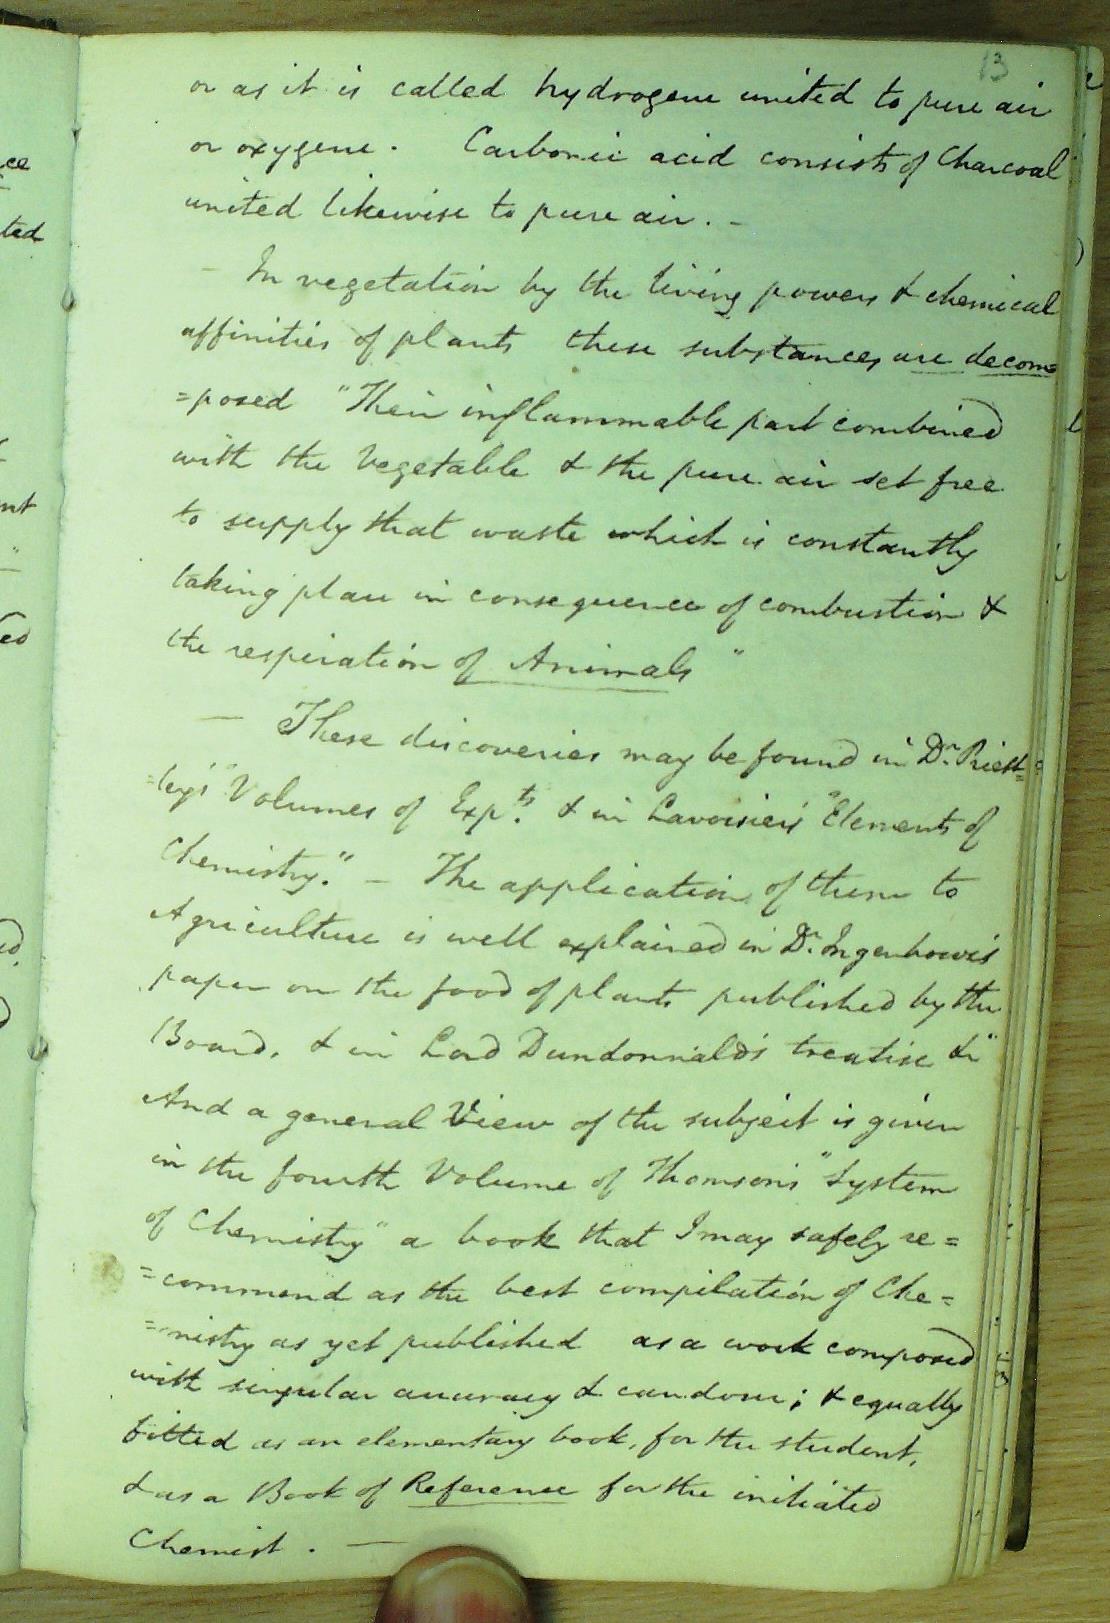 13
or as it is called hydrogene united to pure air
or oxygene. Carbonic acid consists of Charcoal
united likewise to pure air. –
– In vegetation by the living powers & chemical
affinities of plants these substances are decom=
=posed "Their inflammable part combined
with the Vegetable & the pure air set free
to supply that waste which is constantly
taking place in consequence of combustion &
the respiration of Animals"
– These discoveries may be found in Dr. Priest=
=ley's "Volumes of Expts. & in Lavoisier's "Elements of
Chemistry." – The application of them to
Agriculture is well explained in Dr. Ingenhouz's
paper on the food of plants published by the
Board, & in Lord Dundonnald's treatise &c"
And a general View of the subject is given
in the fourth Volume of Thomson's "System
of Chemistry" a book that I may safely re=
=commend as the best compilation of Che=
=mistry as yet published as a work composed
with singular accuracy & candour; & equally
fitted as an elementary book, for the student,
& as a Book of Reference for the initiated
Chemist. —